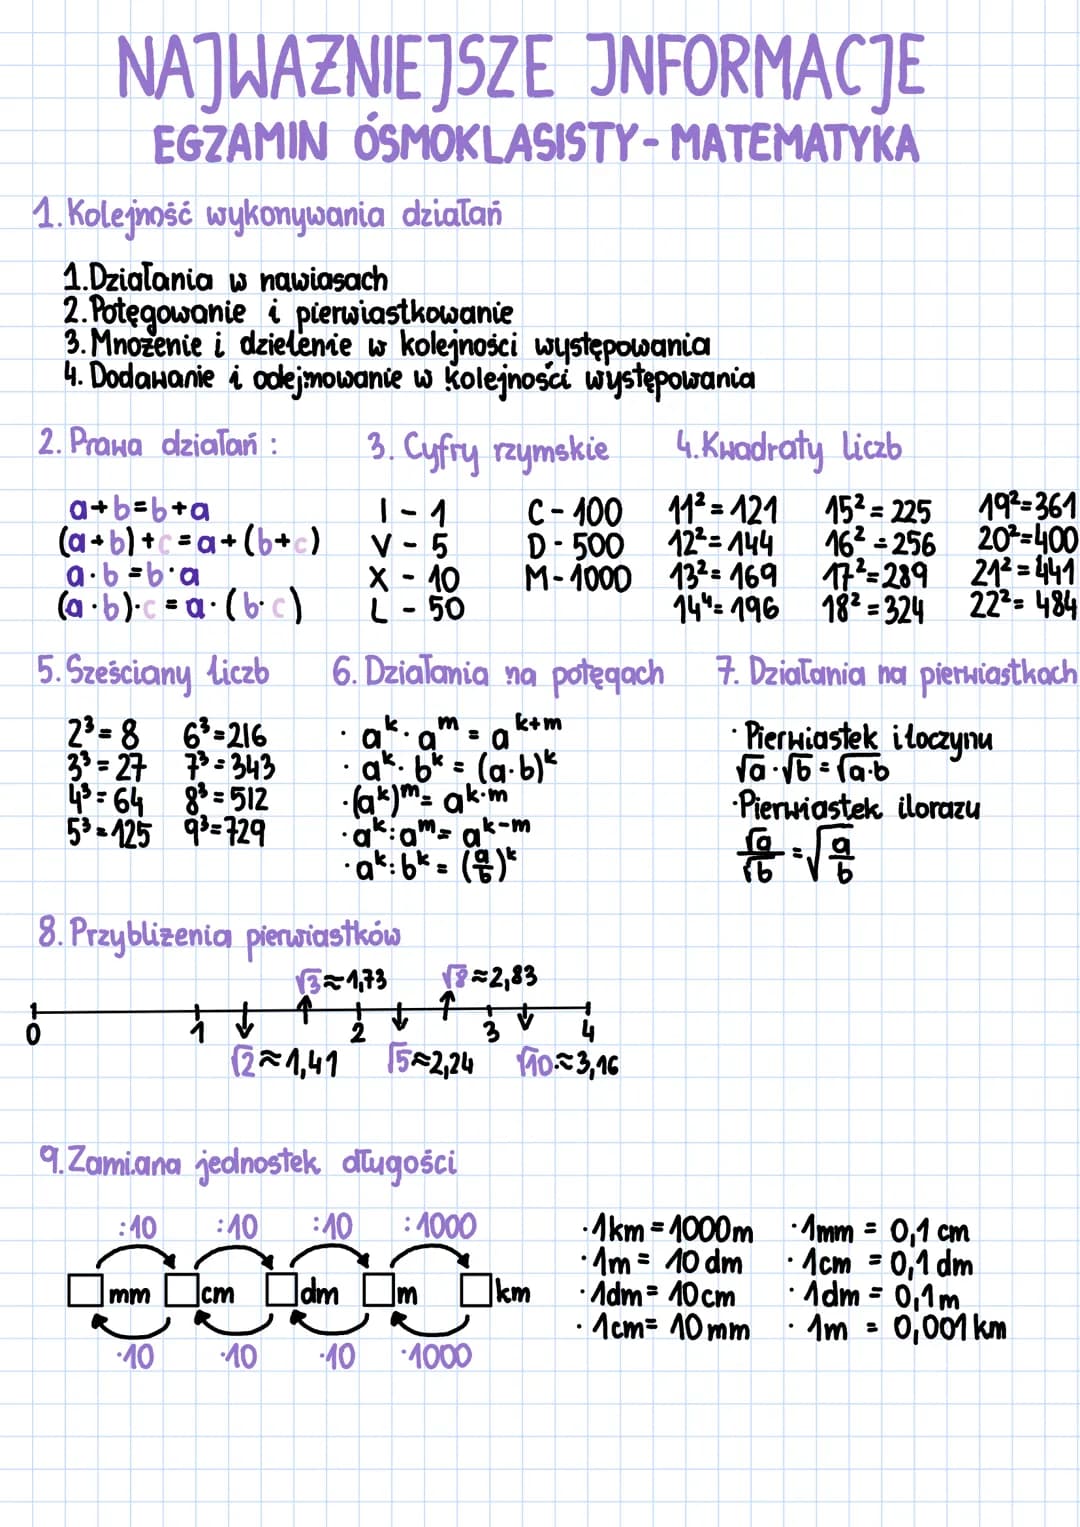 NAJWAŻNIEJSZE INFORMACJE
EGZAMIN ÓSMOKLASISTY - MATEMATYKA
1. Kolejność wykonywania działań
1. Działania w nawiasach
2. Potęgowanie i pierwiastkowanie
3. Mnożenie i dzielenie w kolejności występowania
4. Dodawanie i odejmowanie w kolejności występowania
2. Prawa działań :
a+b=b+a
(a+b)+c=a+(b+c)
a·b=b·a
(a·b)·c=a·(b·c)
3. Cyfry rzymskie
I - 1
V - 5
X - 10
L - 50
C - 100
D - 500
M - 1000
4. Kwadraty liczb
11²=121 15²=225 19²=361
12²=144 16²=256 20²=400
13²=169 17²=289 21²=441
14⁴=196 18²=324 22²=484
5. Sześciany liczb
2³=8 6³=216
3³=27 7³=343
4³=64 8³=512
5³=125 9³=729
6. Działania na potęgach
· aᵏ·aᵐ = aᵏ⁺ᵐ
· aᵏ·bᵏ = (a·b)ᵏ
· (aᵏ)ᵐ = aᵏ·ᵐ
· aᵏ:aᵐ = aᵏ⁻ᵐ
· aᵏ:bᵏ = (a/b)ᵏ
7. Działania na pierwiastkach
· Pierwiastek iloczynu
√a·√b=√a·b
· Pierwiastek ilorazu
√a/√b = √a/b
8. Przybliżenia pierwiastków
√3≈1,73 √8≈2,83
0 1 2 3 4
√2≈1,41 √5≈2,24 √10≈3,16
9. Zamiana jednostek długości
:10 :10 :10 :1000
mm cm dm m km
·10 ·10 ·10 ·1000
· 1km = 1000m
· 1m = 10 dm
· 1dm = 10cm
· 1cm = 10mm
· 1mm = 0,1 cm
· 1cm = 0,1 dm
· 1dm = 0,1m
· 1m = 0,001 km